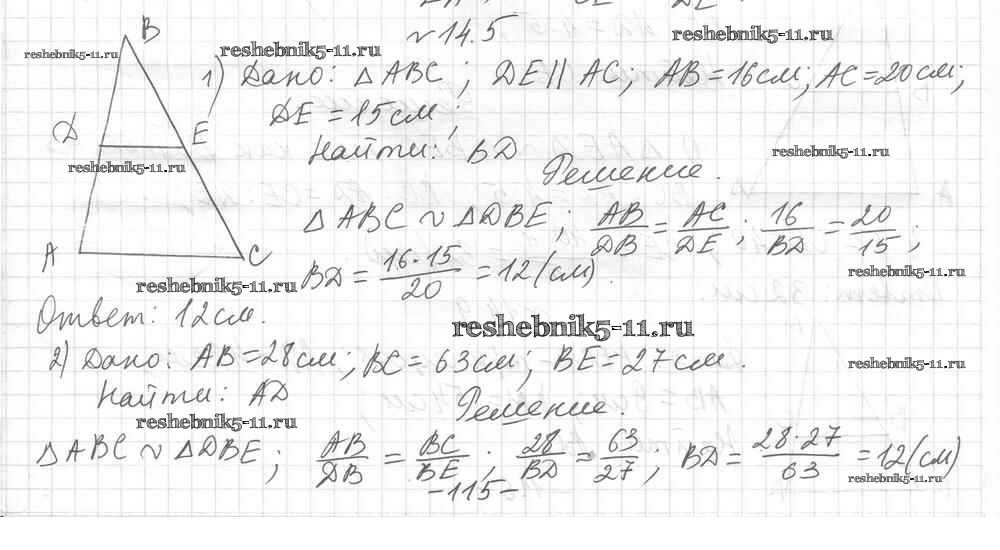 № 14.5
reshebnik5-11.ru reshebnik5-11.ru reshebnik5-11.ru
B
1) Дано: △ ABC; DE || AC; AB = 16 см; AC = 20 см;
DE = 15 см;
Д E
reshebnik5-11.ru
Найти: BD
reshebnik5-11.ru
Решение.
△ ABC ~ △ DBE; AB/DB = AC/DE; 16/BD = 20/15;
A C
BD = 16·15/20 = 12 (см).
reshebnik5-11.ru reshebnik5-11.ru
Ответ: 12 см.
reshebnik5-11.ru
2) Дано: AB = 28 см; BC = 63 см; BE = 27 см.
reshebnik5-11.ru
Найти: AD
Решение.
reshebnik5-11.ru
△ ABC ~ △ DBE; AB/DB = BC/BE; 28/BD = 63/27; BD = 28·27/63 = 12 (см)
reshebnik5-11.ru
-115-